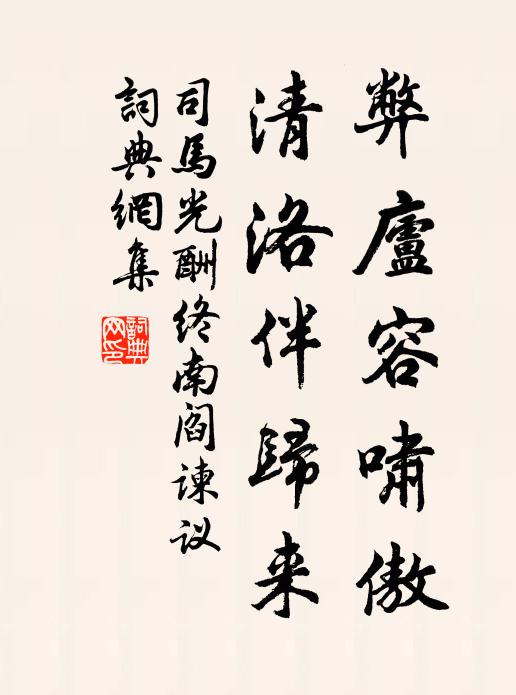 弊廬容啸傲
清洛伴歸来
司馬光酬终南閻谏议
詞典網集
詞典网印